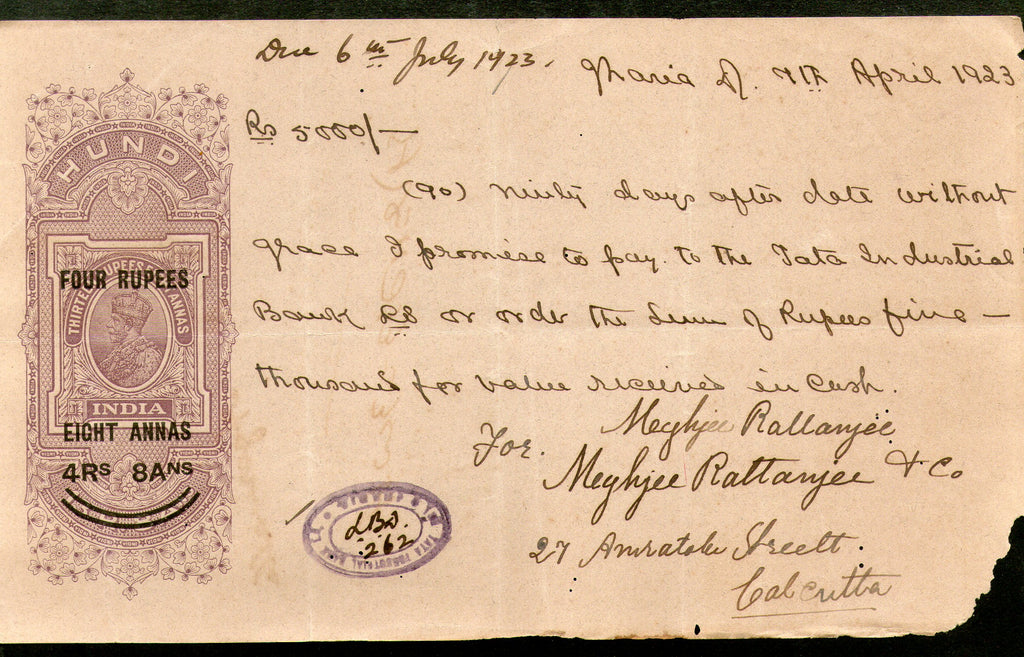 Due 6th July 1923.
Jharia D/. 7th April 1923
Rs 5000/-
(90) ninty days after date without
grace I promise to pay to the Tata Industrial
Bank Ld or order the sum of Rupees five -
thousand for value received in cash.
Meghjee Rattanjee
For. Meghjee Rattanjee & Co
27 Amratola Street.
Calcutta
HUNDI
THIRTEEN RUPEES ANNAS
FOUR RUPEES
INDIA
EIGHT ANNAS
4RS 8ANS
TATA INDUSTRIAL BANK LD JHARIA
LBD.
262